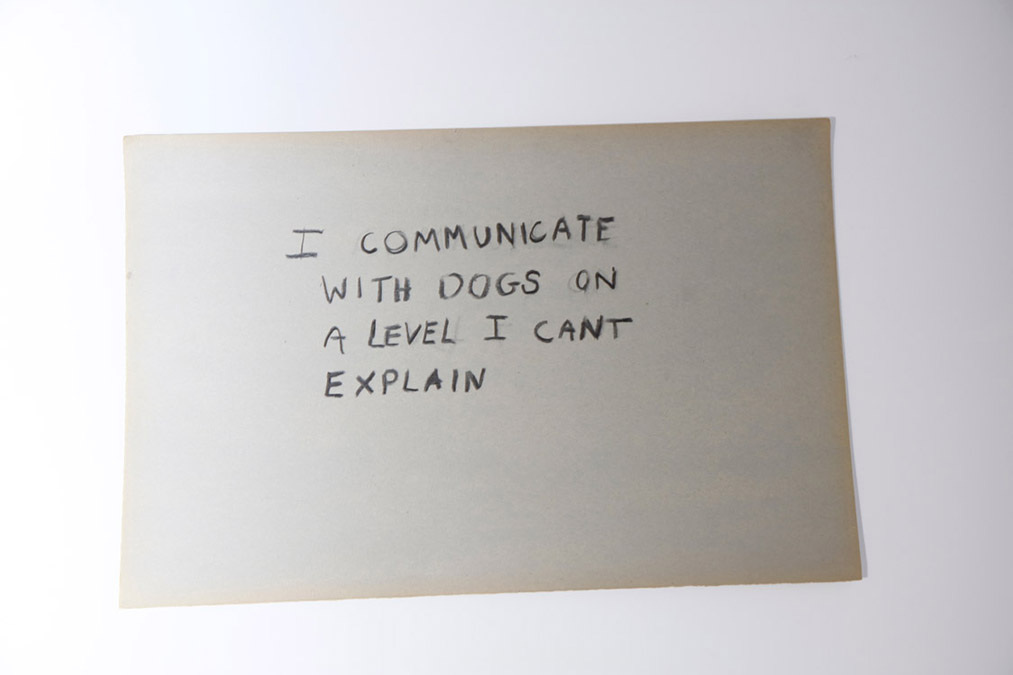 I COMMUNICATE
WITH DOGS ON
A LEVEL I CANT
EXPLAIN